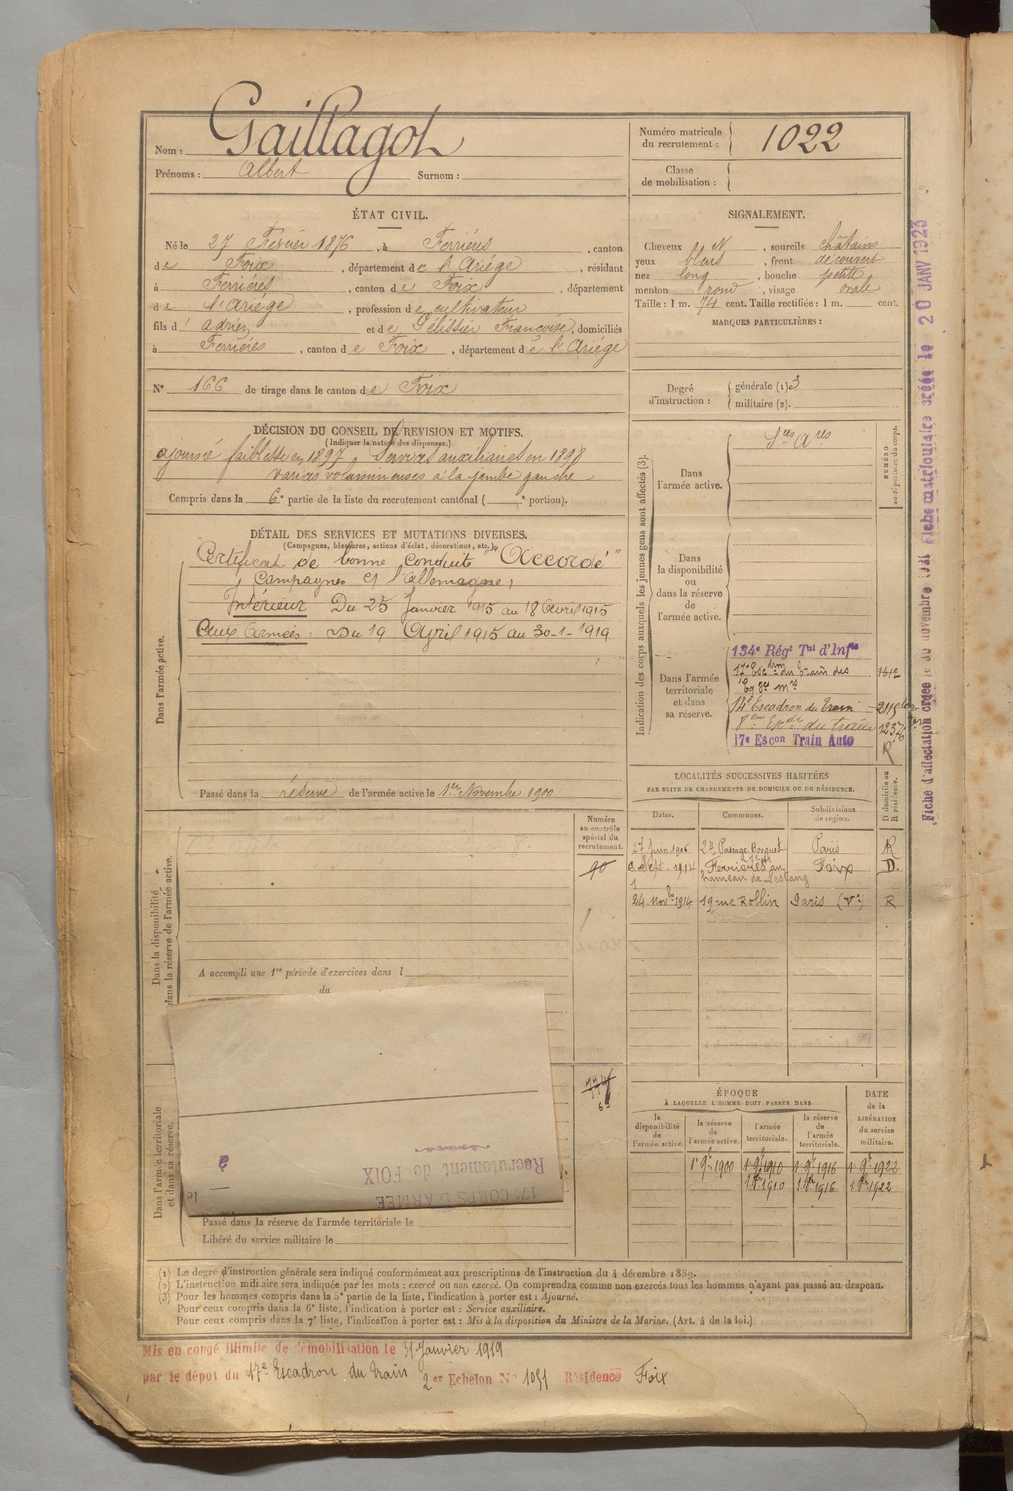 Nom : Gaillagot
Prénoms : Albert Surnom :
Numéro matricule du recrutement : 1022
Classe de mobilisation :
ÉTAT CIVIL.
Né le 27 Février 1876, à Ferrières, canton
de Foix, département de l'Ariége, résidant
à Ferriéres, canton de Foix, département
de l'Ariége, profession de cultivateur
fils d' Adrien et de Pélissier Françoise, domiciliés
à Ferriéres, canton de Foix, département de l'Ariége
N° 166 de tirage dans le canton de Foix
SIGNALEMENT.
Cheveux bl N, sourcils châtains
yeux bleus, front découvert
nez long, bouche petite
menton rond, visage ovale
Taille : 1 m. 74 cent. Taille rectifiée : 1 m. cent.
MARQUES PARTICULIÈRES :
Degré d'instruction : générale (1) 3
militaire (2).
DÉCISION DU CONSEIL DE REVISION ET MOTIFS.
(Indiquer la nature des dispenses.)
ajourné faiblesse en 1897, Services auxiliaires en 1898
varices volumineuses à la jambe gauche
Compris dans la 6e partie de la liste du recrutement cantonal ( e portion).
DÉTAIL DES SERVICES ET MUTATIONS DIVERSES.
(Campagnes, blessures, actions d'éclat, décorations, etc.)
Certificat de bonne conduite "Accordé"
Campagnes Ct l'Allemagne
Intérieur Du 25 Janvier 1915 au 18 Avril 1915
Aux Armées : Du 19 Avril 1915 au 30-1-1919
Dans l'armée active.
Passé dans la réserve de l'armée active le 1er Novembre 1900
Indication des corps auxquels les jeunes gens sont affectés (3).
NUMÉRO au répertoire du corps.
Dans l'armée active.
Sces Ares
Dans la disponibilité ou dans la réserve de l'armée active.
Dans l'armée territoriale et dans sa réserve.
134e Régt Tal d'Infie
17e Escdron du train des
14e Escadron du Train
8e Escdr du train
17e Escon Train Auto
LOCALITÉS SUCCESSIVES HABITÉES
PAR SUITE DE CHANGEMENTS DE DOMICILE OU DE RÉSIDENCE.
Dates. Communes. Subdivisions de région. D domicile ou R résidence.
27 Juin 1906 22 Passage Bosquet Paris R
Sept. 1914 Ferrières au hameau de Foix D.
24 novbre 1914 19 rue Rollin Paris (Ve) R
Dans la disponibilité ou dans la réserve de l'armée active.
Numéro au contrôle spécial du recrutement.
90
A accompli une 1re période d'exercices dans l
du
Recrutement de FOIX
17e CORPS D'ARMÉE
le
Dans l'armée territoriale et dans sa réserve.
Passé dans la réserve de l'armée territoriale le
Libéré du service militaire le
ÉPOQUE
À LAQUELLE L'HOMME DOIT PASSER DANS
la disponibilité de l'armée active. la réserve de l'armée active. l'armée territoriale. la réserve de l'armée territoriale.
DATE de la LIBÉRATION du service militaire.
1er 9bre 1900 1er 9bre 1910 1er 9bre 1916 1er 9bre 1922
1910 1916 1922
(1) Le degré d'instruction générale sera indiqué conformément aux prescriptions de l'instruction du 4 décembre 1889.
(2) L'instruction militaire sera indiquée par les mots : exercé ou non exercé. On comprendra comme non exercés tous les hommes n'ayant pas passé au drapeau.
(3) Pour les hommes compris dans la 5e partie de la liste, l'indication à porter est : Ajourné.
Pour ceux compris dans la 6e liste, l'indication à porter est : Service auxiliaire.
Pour ceux compris dans la 7e liste, l'indication à porter est : Mis à la disposition du Ministre de la Marine. (Art. 4 de la loi.)
Mis en congé illimité de démobilisation le 31 Janvier 1919
par le dépôt du 17e Escadron du Train 2er Echelon N° 1031 Résidence Foix
Fiche matriculaire créée le 20 JANV 1923
Fiche d'affectation créée le 30 novembre 1921